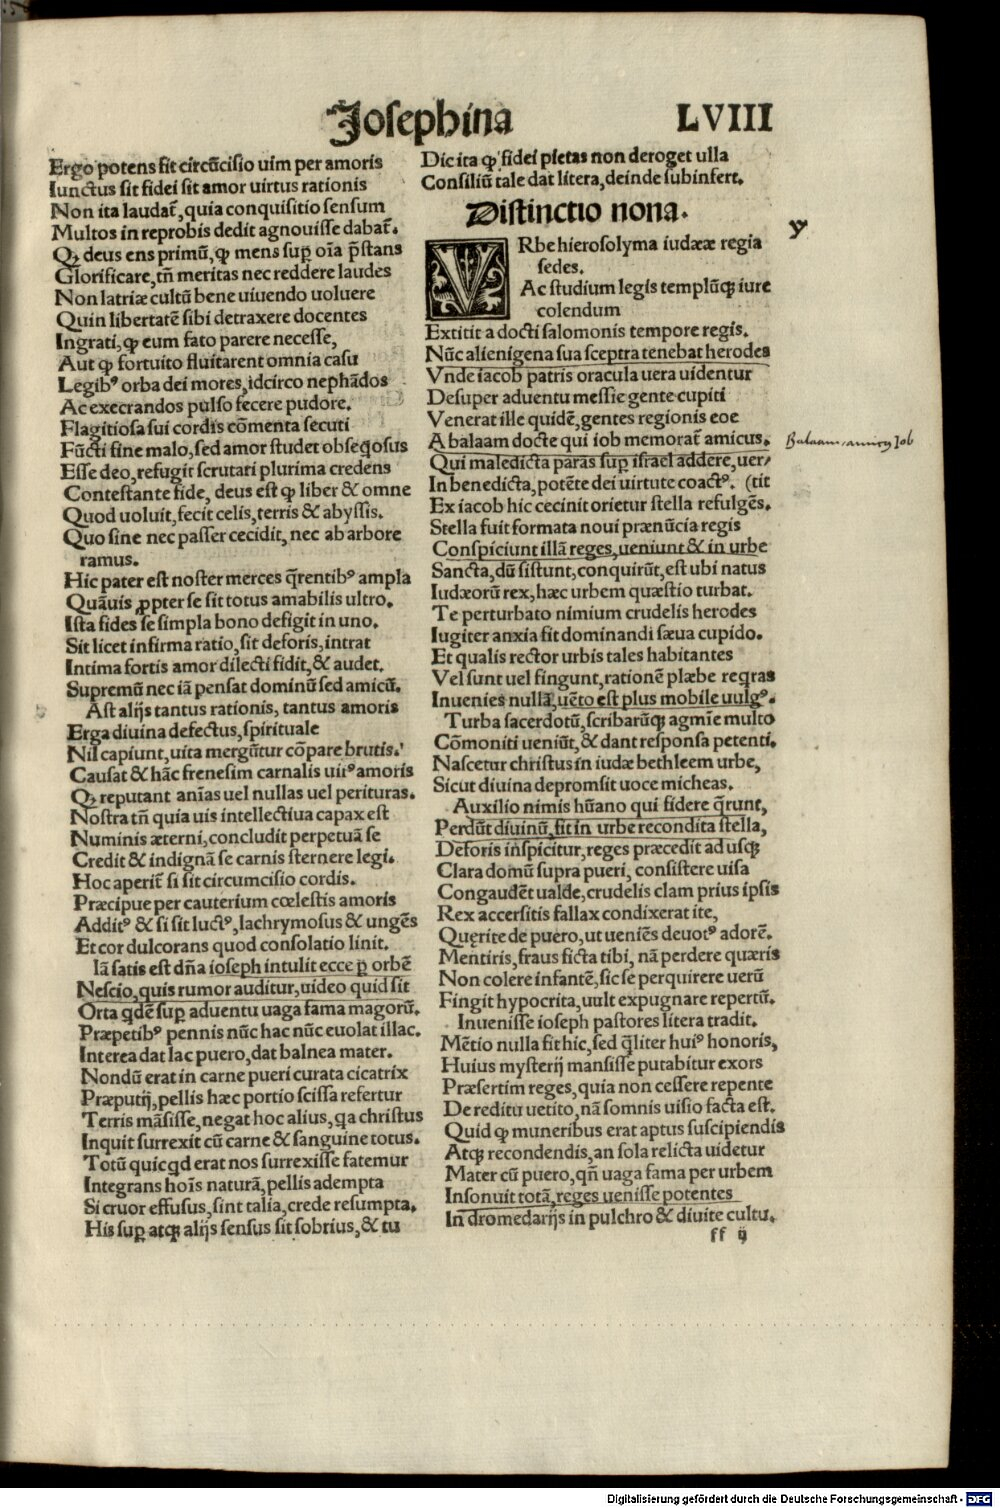 Iosephina LVIII
Ergo potens fit circũcisio uim per amoris
Iunctus sit fidei sit amor uirtus rationis
Non ita laudat᷑, quia conquisitio sensum
Multos in reprobis dedit agnouisse dabat᷑.
Q; deus ens primũ, ꝙ mens sup̱ oĩa p̃stans
Glorificare, tñ meritas nec reddere laudes
Non latriæ cultũ bene uiuendo uoluere
Quin libertatẽ sibi detraxere docentes
Ingrati, ꝙ eum fato parere necesse,
Aut ꝙ fortuito fluitarent omnia casu
Legibꝰ orba dei mores, idcirco nephãdos
Ac execrandos pulso fecere pudore.
Flagitiosa sui cordis cõmenta secuti
Fũcti fine malo, sed amor studet obseq̃osus
Esse deo, refugit scrutari plurima credens
Contestante fide, deus est ꝙ liber & omne
Quod uoluit, fecit celis, terris & abyssis.
Quo sine nec passer cecidit, nec ab arbore
ramus.
Hic pater est noster merces q̃rentibꝰ ampla
Quãuis ꝓpter se sit totus amabilis ultro.
Ista fides se simpla bono defigit in uno.
Sit licet infirma ratio, sit deforis, intrat
Intima fortis amor dilecti fidit, & audet.
Supremũ nec iã pensat dominũ sed amicũ.
Ast alijs tantus rationis, tantus amoris
Erga diuina defectus, spirituale
Nil capiunt, uita mergũtur cõpare brutis.
Causat & hãc frenesim carnalis uirꝰ amoris
Q; reputant anĩas uel nullas uel perituras.
Nostra tñ quia uis intellectiua capax est
Numinis æterni, concludit perpetuã se
Credit & indignã se carnis sternere legi.
Hoc aperit᷑ si sit circumcisio cordis.
Præcipue per cauterium cœlestis amoris
Additꝰ & si sit luctꝰ, lachrymosus & ungẽs
Et cor dulcorans quod consolatio linit.
Iã satis est dña ioseph intulit ecce p̱ orbẽ
Nescio, quis rumor auditur, uideo quid sit
Orta q̃dẽ sup̱ aduentu uaga fama magorũ.
Præpetibꝰ pennis nũc hac nũc euolat illac.
Interea dat lac puero, dat balnea mater.
Nondũ erat in carne pueri curata cicatrix
Præputij, pellis hæc portio scissa refertur
Terris mãsisse, negat hoc alius, q̃a christus
Inquit surrexit cũ carne & sanguine totus.
Totũ quicq̃d erat nos surrexisse fatemur
Integrans hoĩs naturã, pellis adempta
Si cruor effusus, sint talia, crede resumpta.
His sup̱ atq; alijs sensus sit sobrius, & tu
Dic ita ꝙ fidei pietas non deroget ulla
Consiliũ tale dat litera, deinde subinfert.
Distinctio nona.
VRbe hierosolyma iudææ regia
sedes.
Ac studium legis templũq; iure
colendum
Extitit a docti salomonis tempore regis.
Nũc alienigena sua sceptra tenebat herodes
Vnde iacob patris oracula uera uidentur
Desuper aduentu messie gente cupiti
Venerat ille quidẽ, gentes regionis eoe
A balaam docte qui iob memorat᷑ amicus.
Qui maledicta parãs sup̱ israel addere, uer/
In benedicta, potẽte dei uirtute coactꝰ. (tit
Ex iacob hic cecinit orietur stella refulgẽs.
Stella fuit formata noui prænũcia regis
Conspiciunt illã reges, ueniunt & in urbe
Sancta, dũ sistunt, conquirũt, est ubi natus
Iudæorũ rex, hæc urbem quæstio turbat.
Te perturbato nimium crudelis herodes
Iugiter anxia fit dominandi sæua cupido.
Et qualis rector urbis tales habitantes
Vel sunt uel fingunt, rationẽ plæbe req̃ras
Inuenies nullã, uẽto est plus mobile uulgꝰ.
Turba sacerdotũ, scribarũq; agmĩe multo
Cõmoniti ueniũt, & dant responsa petenti.
Nascetur christus in iudæ bethleem urbe,
Sicut diuina depromsit uoce micheas.
Auxilio nimis hũano qui fidere q̃runt,
Perdũt diuinũ, fit in urbe recondita stella,
Deforis inspicitur, reges præcedit ad usq;
Clara domũ supra pueri, consistere uisa
Congaudẽt ualde, crudelis clam prius ipsis
Rex accersitis fallax condixerat ite,
Quęrite de puero, ut ueniẽs deuotꝰ adorẽ.
Mentiris, fraus ficta tibi, nã perdere quæris
Non colere infantẽ, sic se perquirere uerũ
Fingit hypocrita, uult expugnare repertũ.
Inuenisse ioseph pastores litera tradit.
Mẽtio nulla fit hic, sed q̃liter huiꝰ honoris,
Huius mysterij mansisse putabitur exors
Præsertim reges, quia non cessere repente
De reditu uetito, nã somnis uisio facta est.
Quid ꝙ muneribus erat aptus suscipiendis
Atq; recondendis, an sola relicta uidetur
Mater cũ puero, qñ uaga fama per urbem
Insonuit totã, reges uenisse potentes
In dromedarijs in pulchro & diuite cultu.
ff ij
y
Balaam amicus Iob
Digitalisierung gefördert durch die Deutsche Forschungsgemeinschaft - DFG